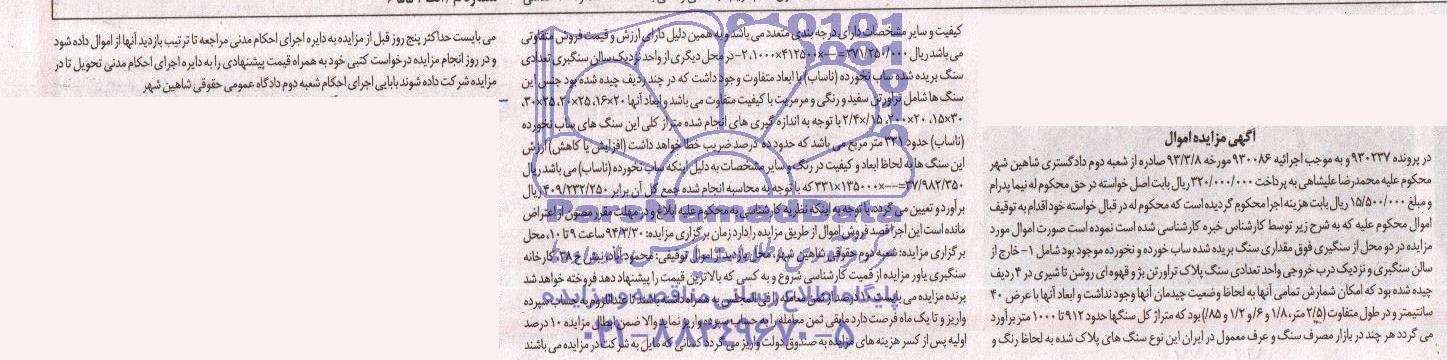 آگهی مزایده اموال
در پرونده ۹۳۰۲۳۷ و به موجب اجرائیه ۹۳۰۰۸۶ مورخه ۹۳/۳/۸ صادره از شعبه دوم دادگستری شاهین شهر
محکوم علیه محمدرضا علیشاهی به پرداخت ۳۲۰/۰۰۰/۰۰۰ ریال بابت اصل خواسته در حق محکوم له نیما پدرام
و مبلغ ۱۵/۵۰۰/۰۰۰ ریال بابت هزینه اجرا محکوم گردیده است که محکوم له در قبال خواسته خود اقدام به توقیف
اموال محکوم علیه که به شرح زیر توسط کارشناس خبره کارشناسی شده است نموده است صورت اموال مورد
مزایده در دو محل از سنگبری فوق مقداری سنگ بریده شده ساب خورده و نخورده موجود بود شامل ۱- خارج از
سالن سنگبری و نزدیک درب خروجی واحد تعدادی سنگ پلاک تراورتن بژ و قهوه ای روشن تا شیری در ۴ ردیف
چیده شده بود که امکان شمارش تمامی آنها به لحاظ وضعیت چیدمان آنها وجود نداشت و ابعاد آنها با عرض ۴۰
سانتیمتر و در طول متفاوت (۲/۵ متر، ۱/۸ و ۱/۶ و ۱/۲ و ۸۵/) بود که متراژ کل سنگها حدود ۹۱۲ تا ۱۰۰۰ متر برآورد
می گردد هر چند در بازار مصرف سنگ و عرف معمول در ایران این نوع سنگ های پلاک شده به لحاظ رنگ و
کیفیت و سایر مشخصات دارای درجه بندی متعدد می باشد و به همین دلیل دارای ارزش و قیمت فروش متفاوتی
می باشد ریال ۳۷۱/۲۵۰/۰۰۰=---×۴۱۲۵۰۰ ۲،۱۰۰۰- در محل دیگری از واحد نزدیک سالن سنگبری تعدادی
سنگ بریده شده ساب نخورده (ناساب) با ابعاد متفاوت وجود داشت که در چند ردیف چیده شده بود جنس این
سنگ ها شامل تراورتن سفید و رنگی و مرمریت با کیفیت متفاوت می باشد و ابعاد آنها ۲۰×۱۶، ۲۵×۲۰، ۲۵×۳۰،
۳۰×۱۵، ۲۰×۲۰۰، ۱۵/×۲/۴ با توجه به اندازه گیری های انجام شده متراژ کلی این سنگ های ساب نخورده
(ناساب) حدود ۳۳۱ متر مربع می باشد که حدود ده درصد ضریب خطا خواهد داشت (افزایش یا کاهش) ارزش
این سنگ ها به لحاظ ابعاد و کیفیت در رنگ و سایر مشخصات به دلیل اینکه ساب نخورده (ناساب) می باشد ریال
۳۷/۹۸۲/۲۵۰=---×۱۳۵۰۰۰×۳۳۱ که با توجه به محاسبه انجام شده جمع کل آن برابر ۴۰۹/۲۳۲/۲۵۰ ریال
برآورد و تعیین می گردد. با توجه به اینکه نظریه کارشناسی به محکوم علیه ابلاغ و در مهلت مقرر مصون از اعتراض
مانده است این اجرا قصد فروش اموال از طریق مزایده را دارد زمان برگزاری مزایده: ۹۴/۳/۳۰ ساعت ۹ تا ۱۰، محل
برگزاری مزایده: شعبه دوم حقوقی شاهین شهر، محل بازدید از اموال توقیفی: محمودآباد نبش خ ۳۸، کارخانه
سنگبری یاور مزایده از قیمت کارشناسی شروع و به کسی که بالاترین قیمت را پیشنهاد دهد فروخته خواهد شد
برنده مزایده می بایست ۱۰ درصد از ثمن معامله را فی المجلس به همراه داشته باشد تا عنداللزوم به حساب سپرده
واریز و تا یک ماه فرصت دارد مابقی ثمن معامله را به حساب سپرده واریز نماید والا ضمن ابطال مزایده ۱۰ درصد
اولیه پس از کسر هزینه های مزایده به صندوق دولت واریز می گردد کسانی که مایل به شرکت در مزایده می باشند
می بایست حداکثر پنج روز قبل از مزایده به دایره اجرای احکام مدنی مراجعه تا ترتیب بازدید آنها از اموال داده شود
و در روز انجام مزایده درخواست کتبی خود به همراه قیمت پیشنهادی را به دایره اجرای احکام مدنی تحویل تا در
مزایده شرکت داده شوند بابایی اجرای احکام شعبه دوم دادگاه عمومی حقوقی شاهین شهر
ParsNamadData
پایگاه اطلاع رسانی مناقصه و مزایده
۰۲۱-۸۸۳۴۹۶۷۰-۵